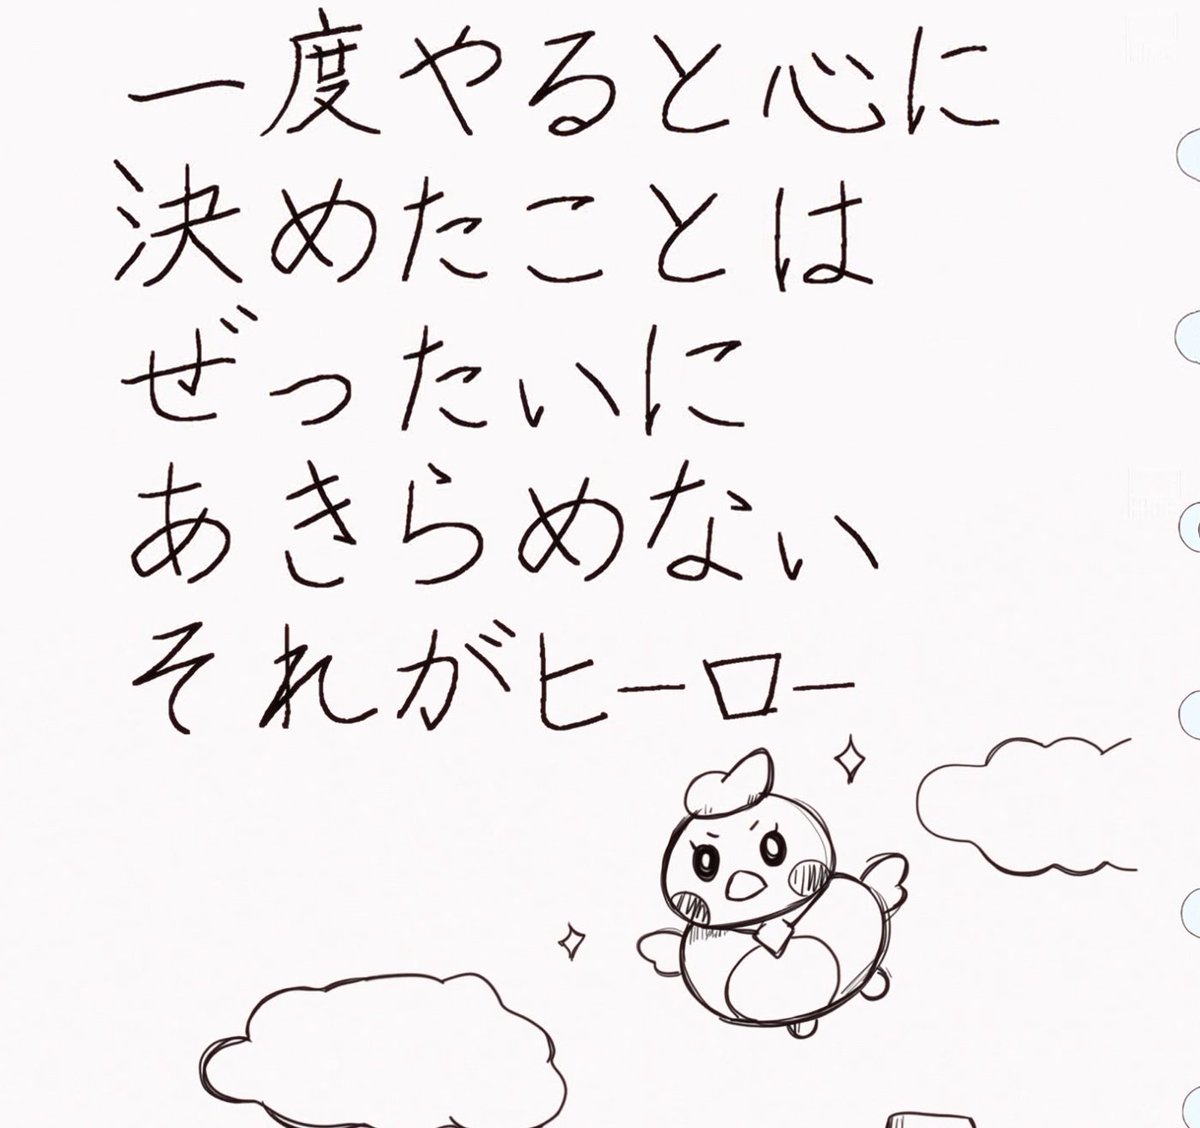 一度やると心に
決めたことは
ぜったいに
あきらめない
それがヒーロー